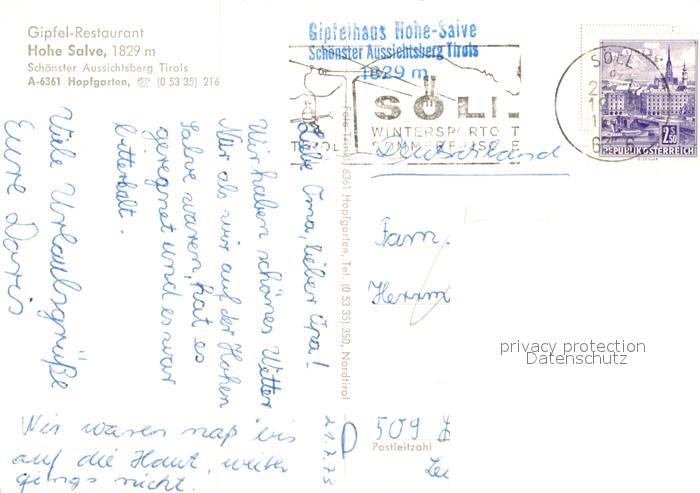 Gipfel-Restaurant
Hohe Salve, 1829 m
Schönster Aussichtsberg Tirols
A-6361 Hopfgarten, ☎ (0 53 35) 216
Gipfelhaus Hohe-Salve
Schönster Aussichtsberg Tirols
1829 m
SÖLL
WINTERSPORTO T
SOMMERFRISCHE
TIROL
SÖLL
2,50
REPUBLIK ÖSTERREICH
21.7.75
Liebe Oma, lieber Opa!
Wir haben schönes Wetter
Nur als wir auf der Hohen
Salve waren, hat es
geregnet und es war
bitterkalt.
Wir waren naß bis
auf die Haut, weiter
gings nicht.
Viele Urlaubsgrüße
Eure Doris
Foto Trinkl, 6361 Hopfgarten, Tel. (0 53 35) 350, Nordtirol
Deutschland
Fam.
Herrm
D
509
Postleitzahl
privacy protection
Datenschutz